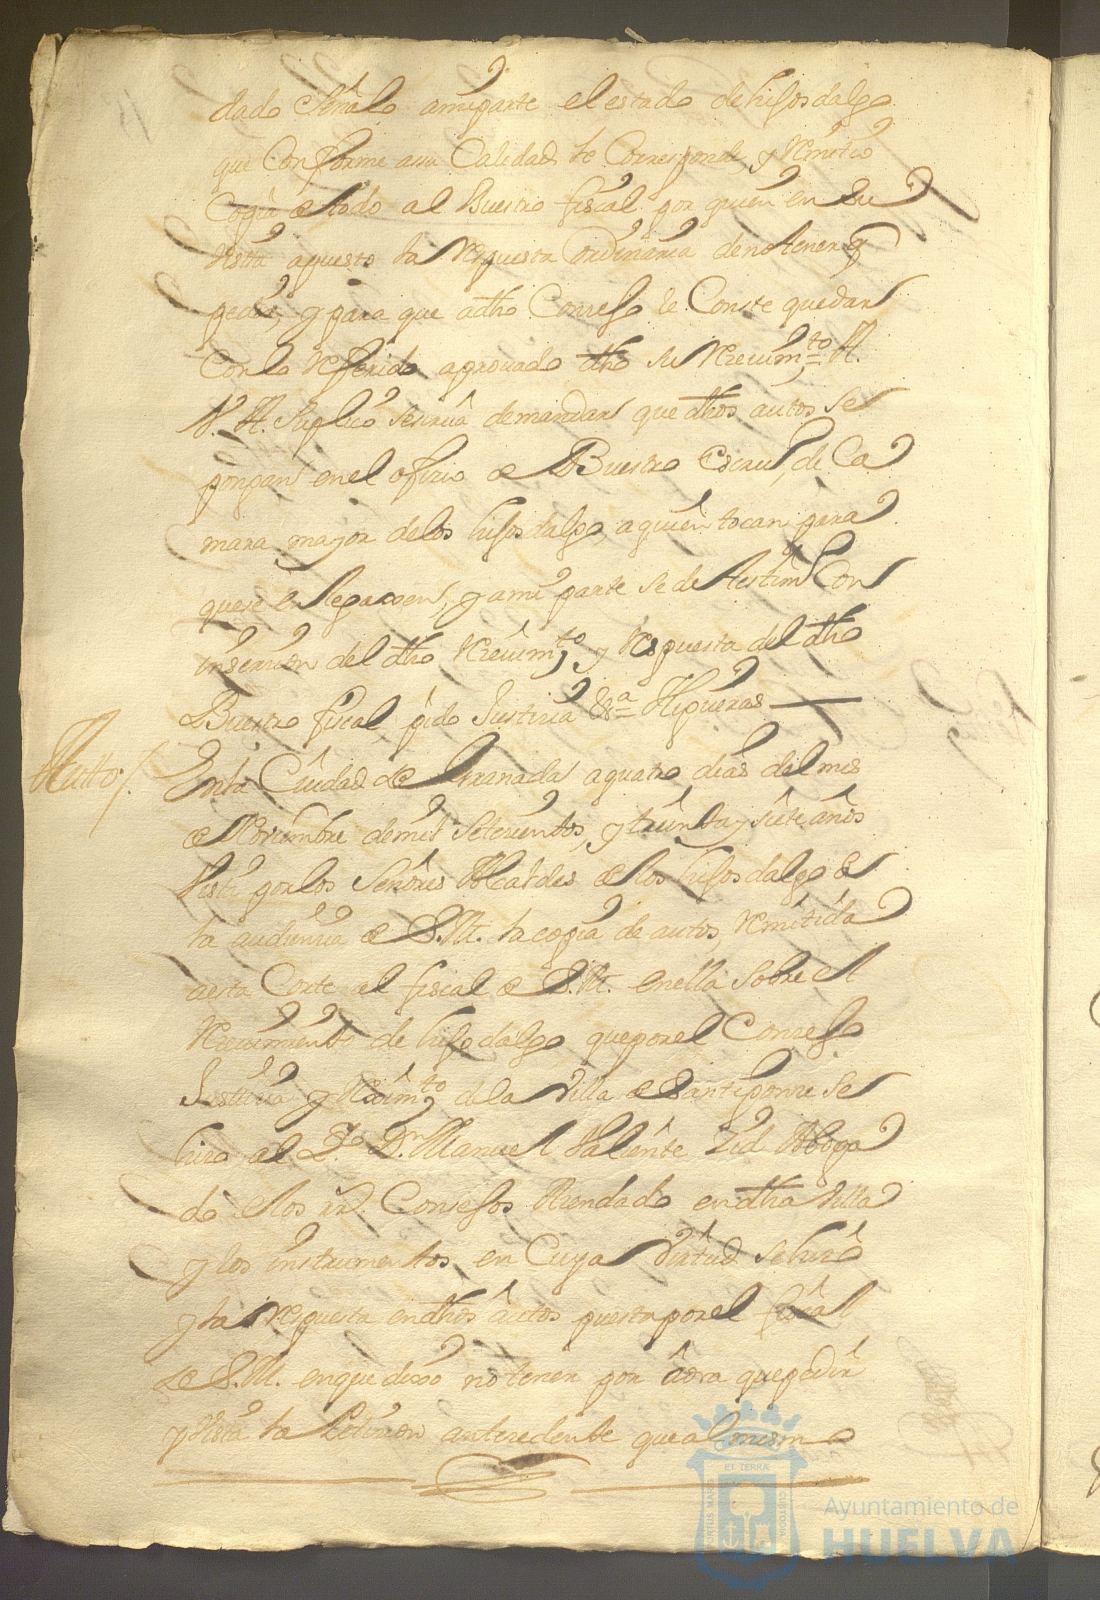 dado señalo amiparte el estado de hijosdalgo
que conforme asu Calidad le Corresponde, y Remitio
Copia de todo al Vuestro fiscal por quien en su
Vista apuesto la Respuesta Ordinaria denotener q
pedir, y para que adho Consejo le Conste quedar
Con lo Referido aprouado dho su Reciuimto A.
V. A. Suplico se sirua demandar que dhos autos se
pongan en el ofizio de Vuestro Escriu, de Ca
mara mayor delos hijos dalgo aquien tocan para
quese, y ami parte se de testim Con
inserzion del dho Reciuimto y Respuesta del dho
Vuestro fiscal, pido Justizia &a Higueras
Autto /. Enla Ciudad de Granada a quatro dias del mes
de Nouiembre demil Setezientos, y treinta y siete años
Vista por los Señores Alcaldes de los hijos dalgo de
la audienzia de S.M. la copia de autos, Remitida
aesta Corte al fiscal de S.M. enella sobre el
Reciuimiento de hijo dalgo que por el Consejo
Justizia y Reximto de la Villa de Santiponze se
hizo al Ldo Dn Manuel Valiente Zid Aboga
do delos Rs. Consejos Hazendado en dha Villa
y los instrumentos en Cuya Virtud se hizo
y la Respuesta en dhos autos puesta por el fiscal
de S.M. enque dixo no tener por aora que pedir
y Vista la Petizion antezedente que al mismo
ET TERRÆ
PORTUS MARIS
CUSTODIA
Ayuntamiento de
HUELVA